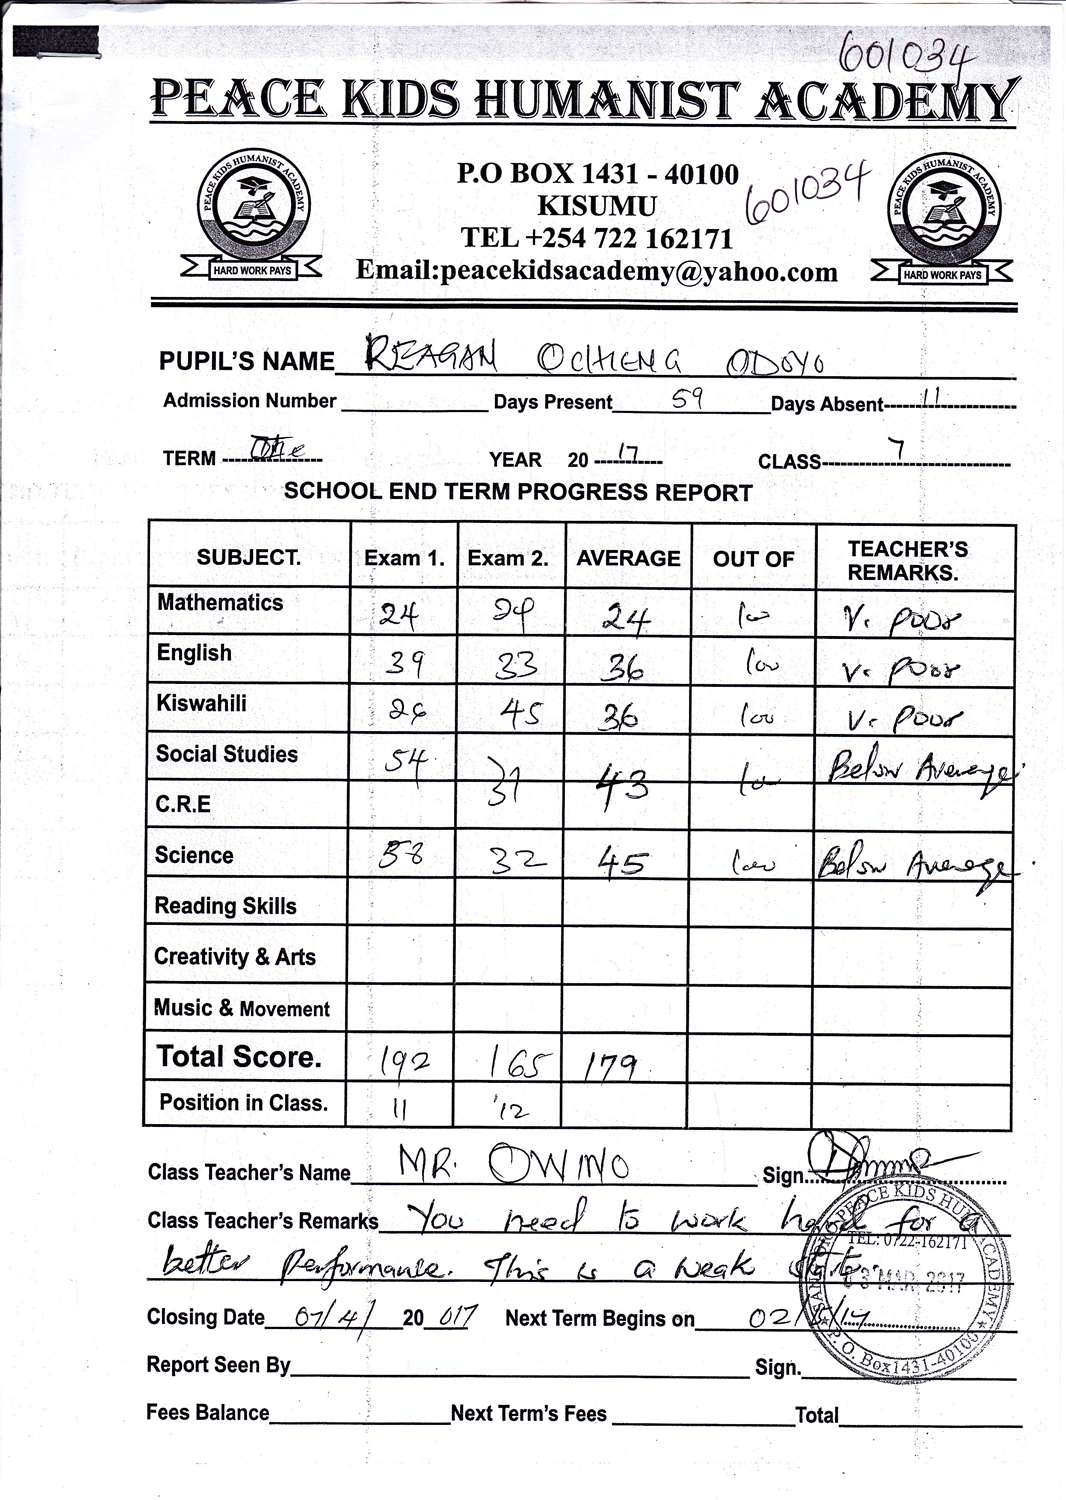 601034
PEACE KIDS HUMANIST ACADEMY
PEACE KIDS HUMANIST ACADEMY
HARD WORK PAYS
P.O BOX 1431 - 40100
601034
KISUMU
TEL +254 722 162171
Email:peacekidsacademy@yahoo.com
PEACE KIDS HUMANIST ACADEMY
HARD WORK PAYS
PUPIL'S NAME REAGAN OCHIENG ODOYO
Admission Number Days Present 59 Days Absent 11
TERM One YEAR 2017 CLASS 7
SCHOOL END TERM PROGRESS REPORT
SUBJECT. Exam 1. Exam 2. AVERAGE OUT OF TEACHER'S REMARKS.
Mathematics 24 24 100 V. poor
English 39 33 36 100 V. poor
Kiswahili 26 45 36 100 V. Poor
Social Studies 54 31 43 100 Below Average
C.R.E
Science 58 32 45 100 Below Average
Reading Skills
Creativity & Arts
Music & Movement
Total Score. 192 165 179
Position in Class. 11 12
Class Teacher's Name MR. OWINO Sign.
Class Teacher's Remarks You need to work hard for a
better Performance. This is a weak
Closing Date 07/4/ 20 017 Next Term Begins on 02/5/17
Report Seen By Sign.
Fees Balance Next Term's Fees Total
PEACE KIDS HU ACADEMY
TEL: 0722-162171
03 MAR 2017
P. O. Box 1431-40100